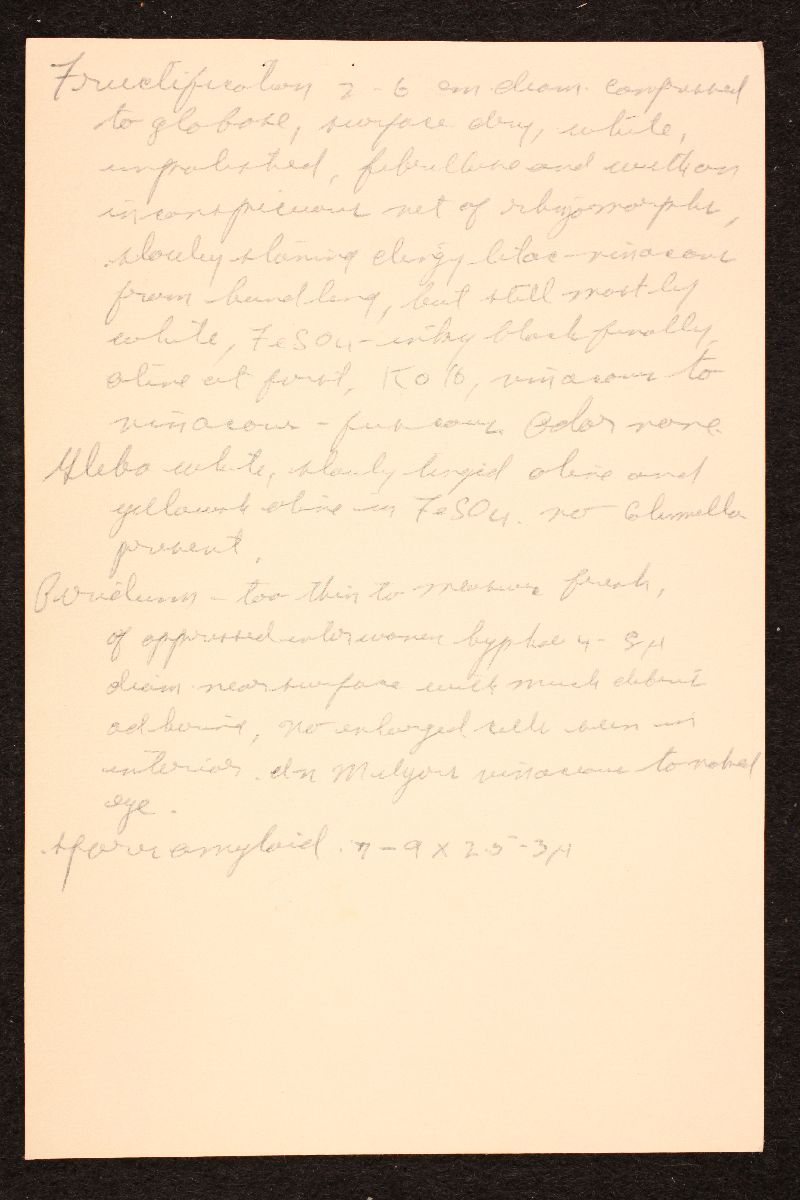 Fructification 2-6 cm diam. compressed
to globose, surface dry, white,
unpolished, fibrillose and with an
inconspicuous net of rhizomorphs,
slowly staining dingy lilac-vinaceous
from handling, but still mostly
white, FeSO4-inky black finally
olive at first, KOH, vinaceous to
vinaceous-fuscous. Odor none.
Gleba white, slowly tinged olive and
yellowish olive in FeSO4. no columella
present.
Peridium - too thin to measure fresh,
of appressed interwoven hyphae 4-8µ
diam near surface with much debris
adhering, no enlarged cells seen in
interior. In Melzers vinaceous to naked
eye.
spores amyloid. 7-9 x 2.5-3µ